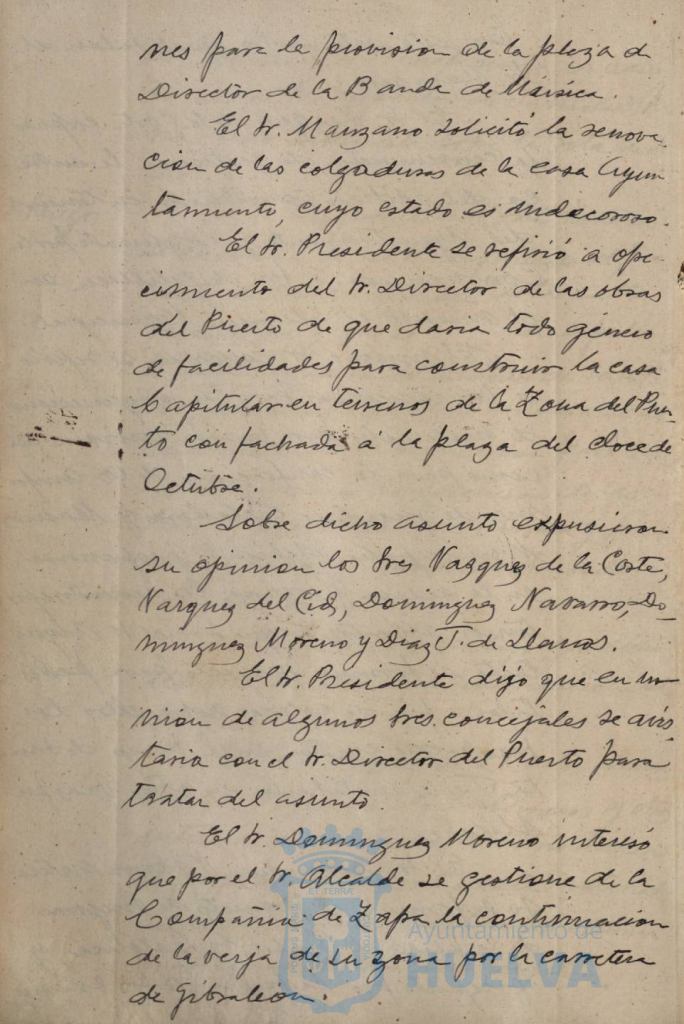 nes para la provision de la plaza de
Director de la Banda de Música.
El Sr. Manzano solicitó la renova-
cion de las colgaduras de la casa Ayun-
tamiento, cuyo estado es indecoroso.
El Sr. Presidente se refirió a ofre-
cimiento del Sr. Director de las obras
del Puerto de que daria todo género
de facilidades para construir la casa
Capitular en terrenos de la Zona del Puer-
to con fachada á la plaza del doce de
Octubre.
Sobre dicho asunto expusieron
su opinion los Sres Vazquez de la Corte,
Vazquez del Cid, Dominguez Navarro, Do-
minguez Moreno y Diaz J. de Llanos.
El Sr. Presidente dijo que en u-
nion de algunos Sres. concejales se avis-
taria con el Sr. Director del Puerto para
tratar del asunto.
El Sr. Dominguez Moreno interesó
que por el Sr. Alcalde se gestione de la
Compañia de Zafra la continuacion
de la verja de su zona por la carretera
de Gibraleon.
Ayuntamiento de
HUELVA